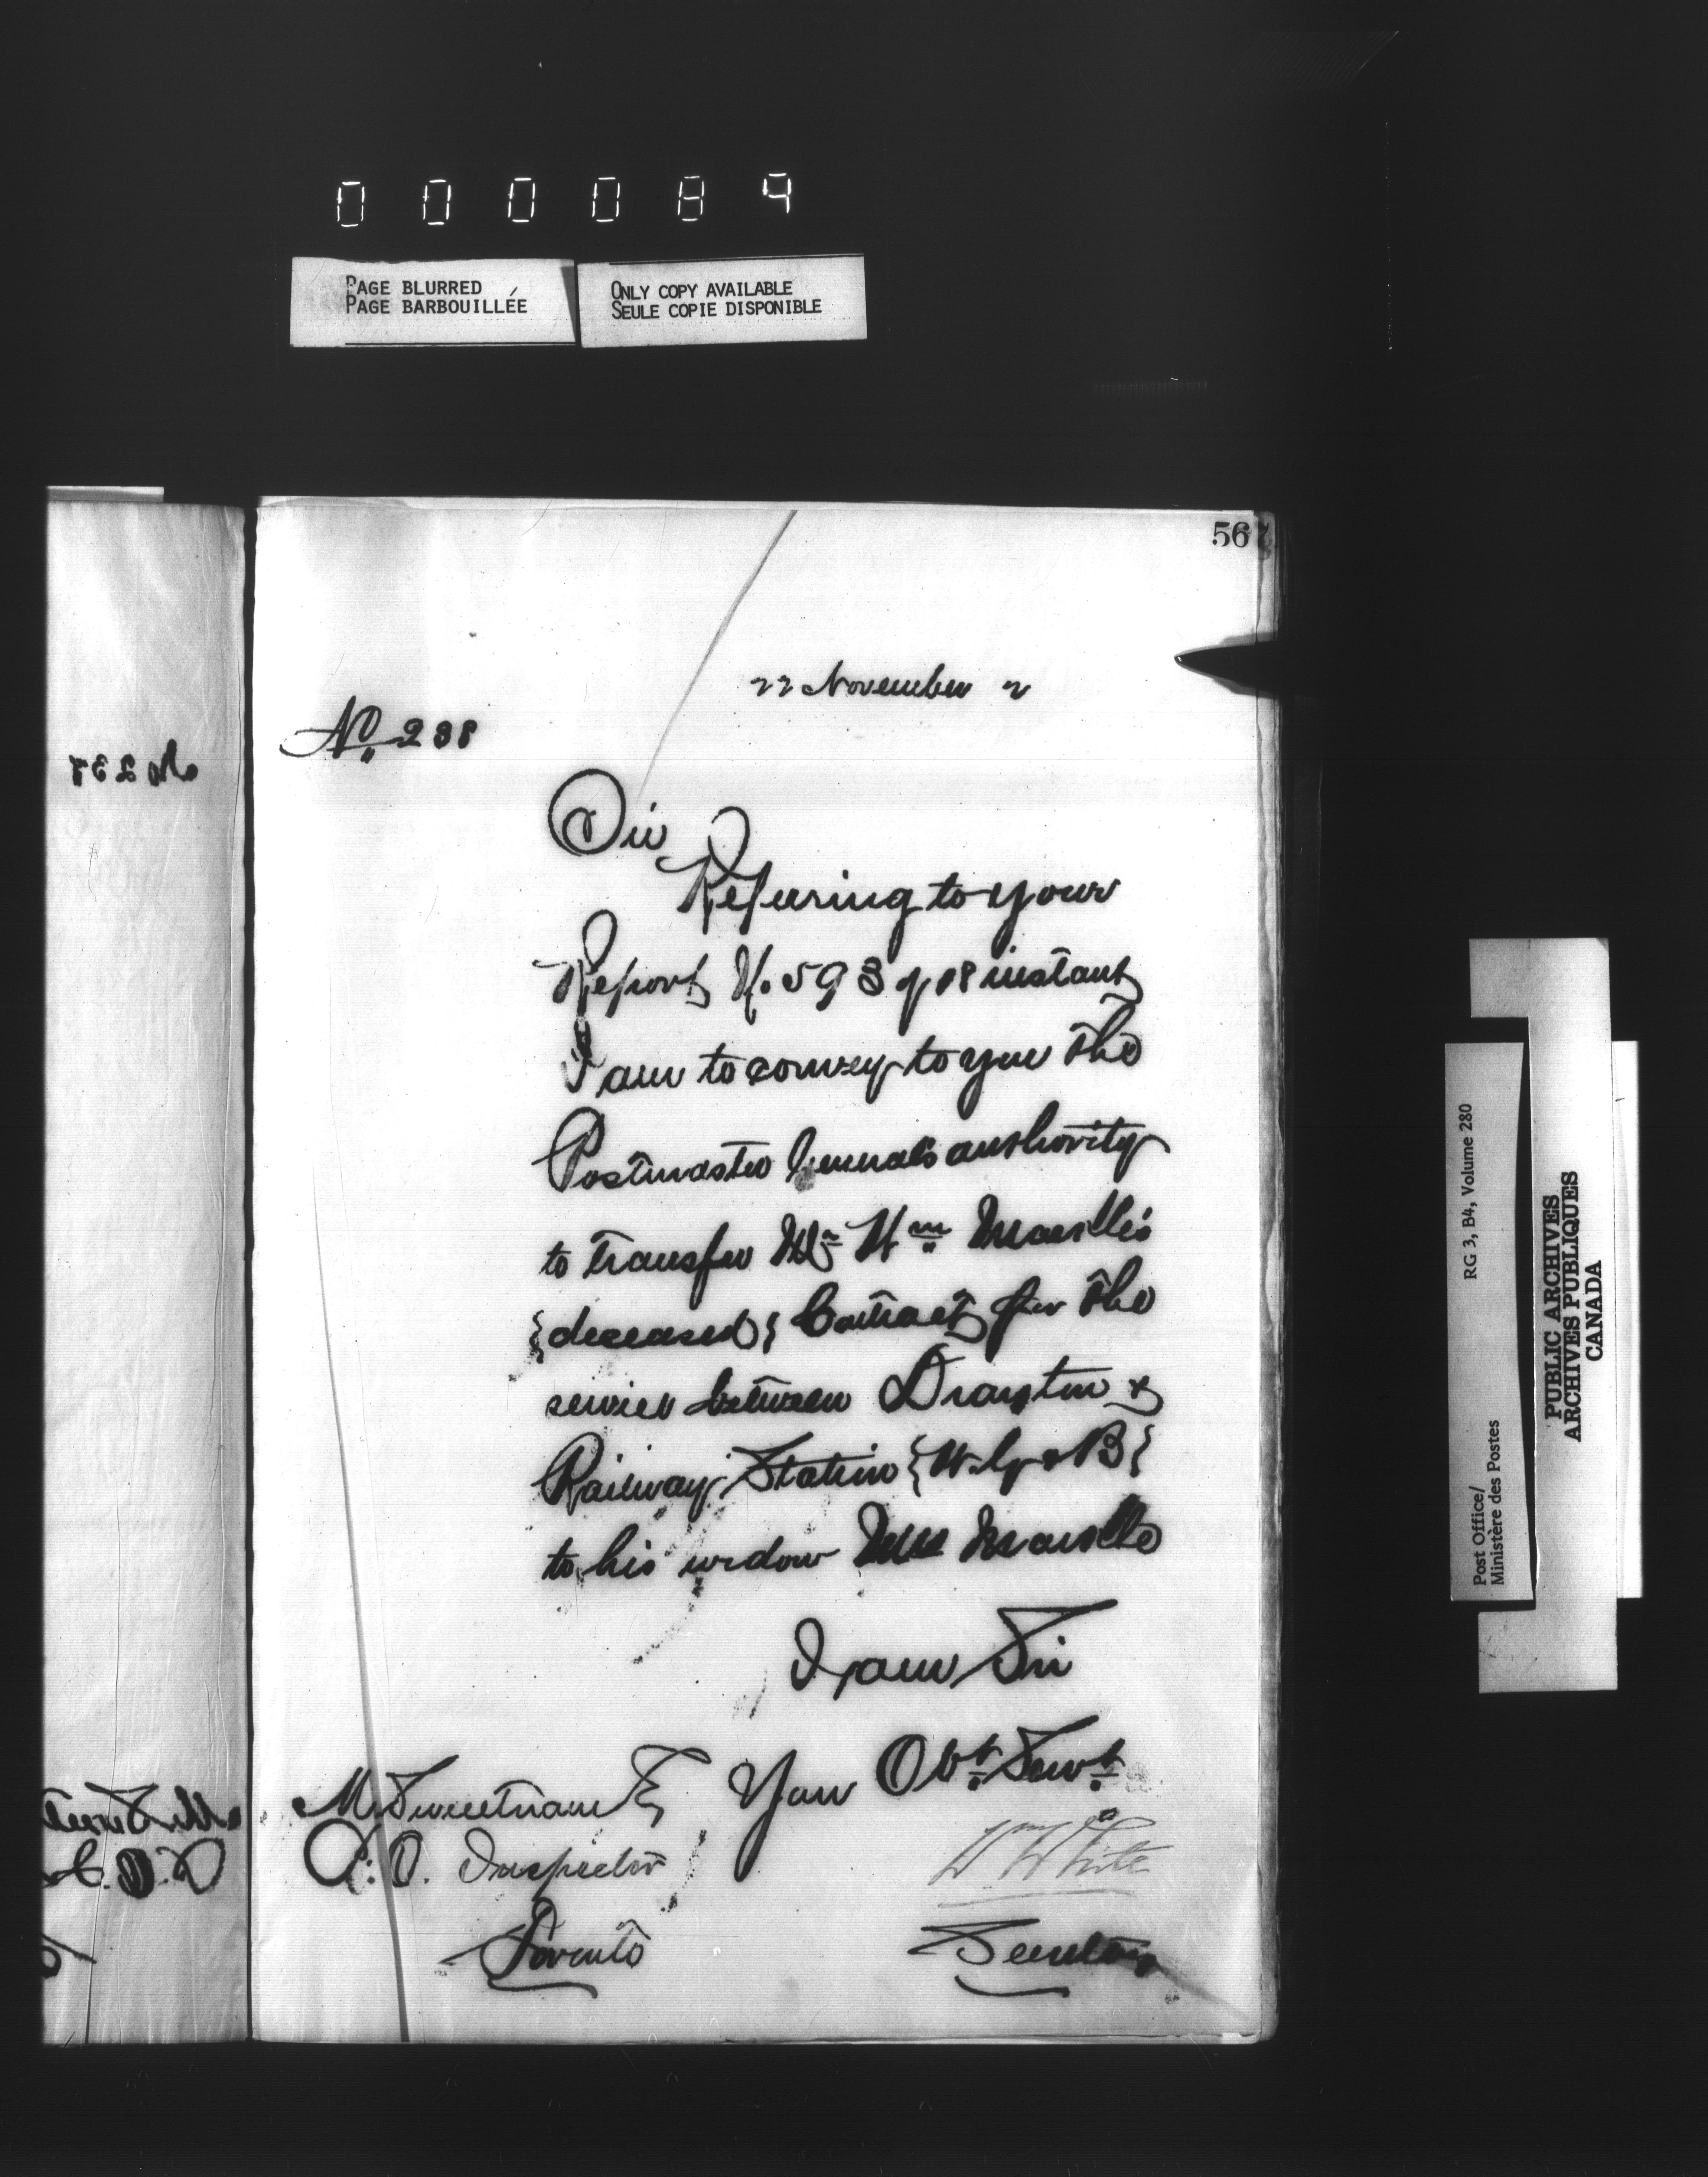 000084
PAGE BLURRED
PAGE BARBOUILLÉE
ONLY COPY AVAILABLE
SEULE COPIE DISPONIBLE
56
22 November 2
No. 238
Sir
Referring to your
Report No. 593 of 18 instant
I am to convey to you the
Postmaster General's authority
to transfer Mr. Wm.
{deceased} Contract for the
service between Drayton &
Railway Station {W. G. & B}
to his widow Mrs
I am Sir
Your Obt. Servt.
M. Sweetnam Esq
P. O. Inspector
Toronto
Wm White
Secretary
No 237
Post Office/
Ministère des Postes
RG 3, B4, Volume 280
PUBLIC ARCHIVES
ARCHIVES PUBLIQUES
CANADA